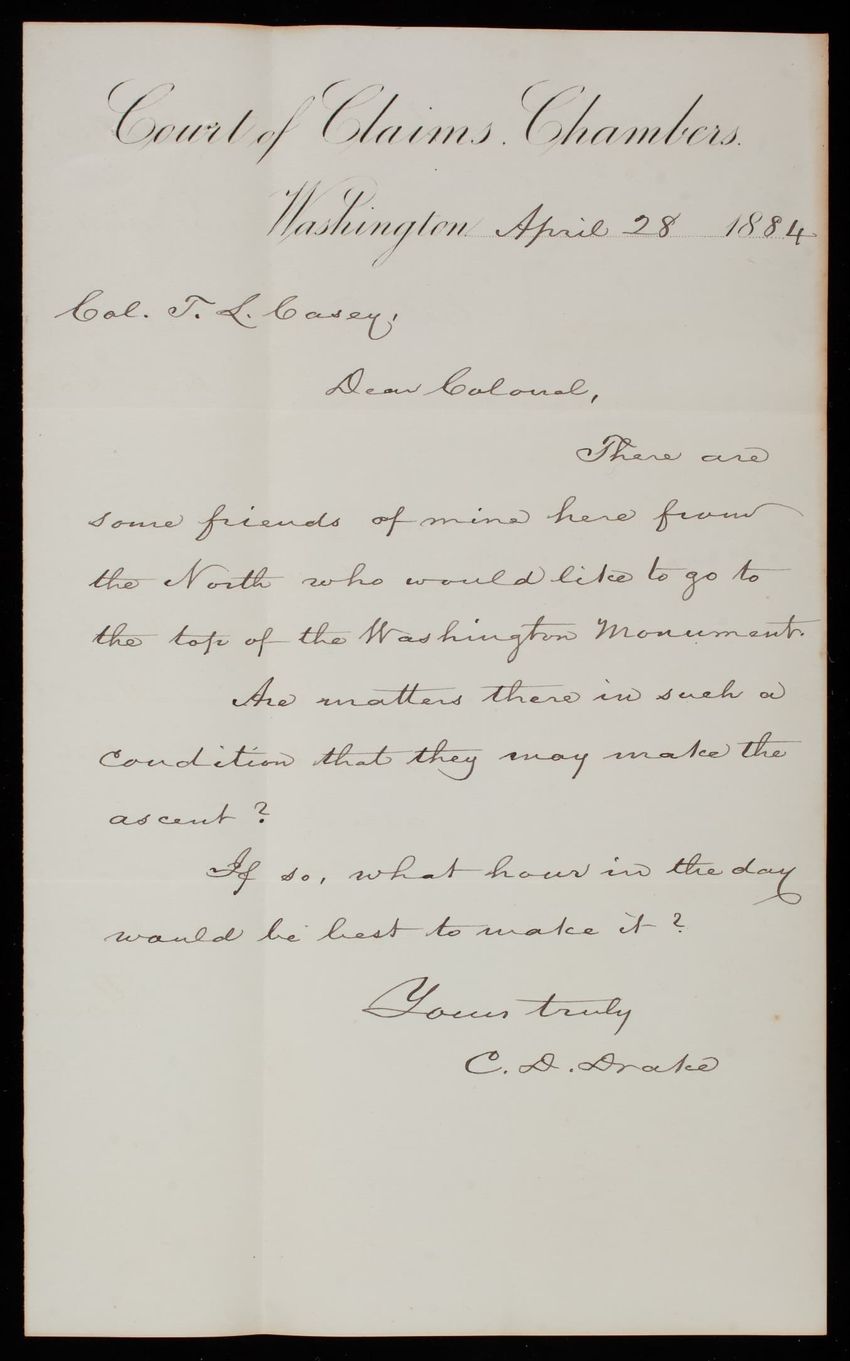 Court of Claims. Chambers.
Washington April 28 1884
Col. T. L. Casey,
Dear Colonel,
There are
some friends of mine here from
the North who would like to go to
the top of the Washington Monument.
Are matters there in such a
condition that they may make the
ascent?
If so, what hour in the day
would be best to make it?
Yours truly
C. D. Drake